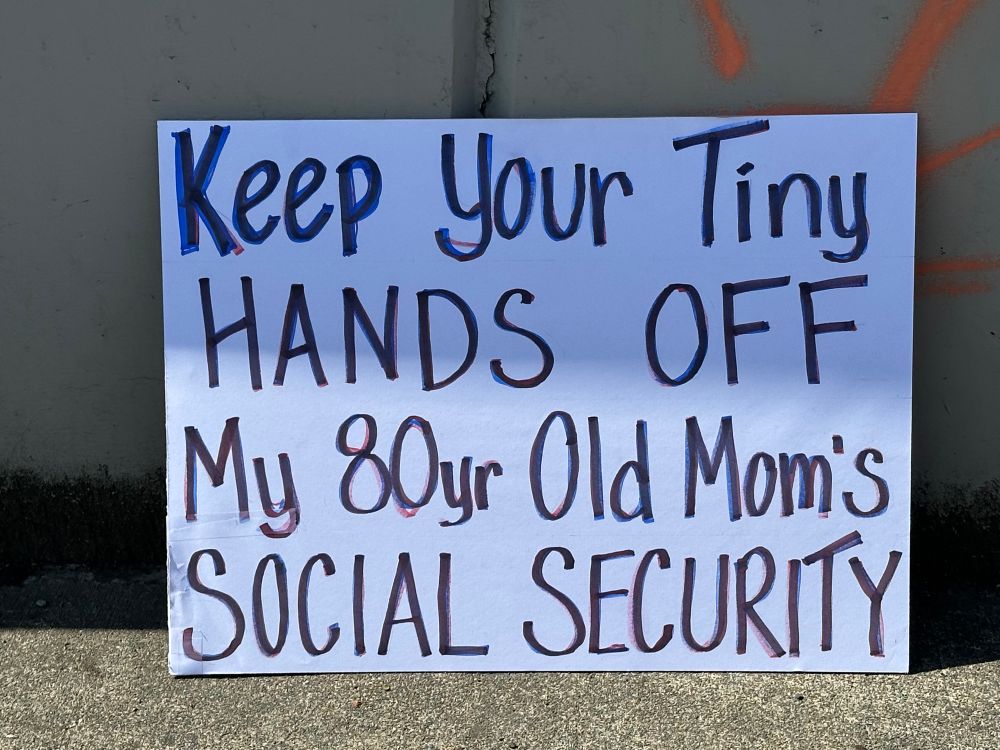 Keep Your Tiny
HANDS OFF
My 80yr Old Mom's
SOCIAL SECURITY